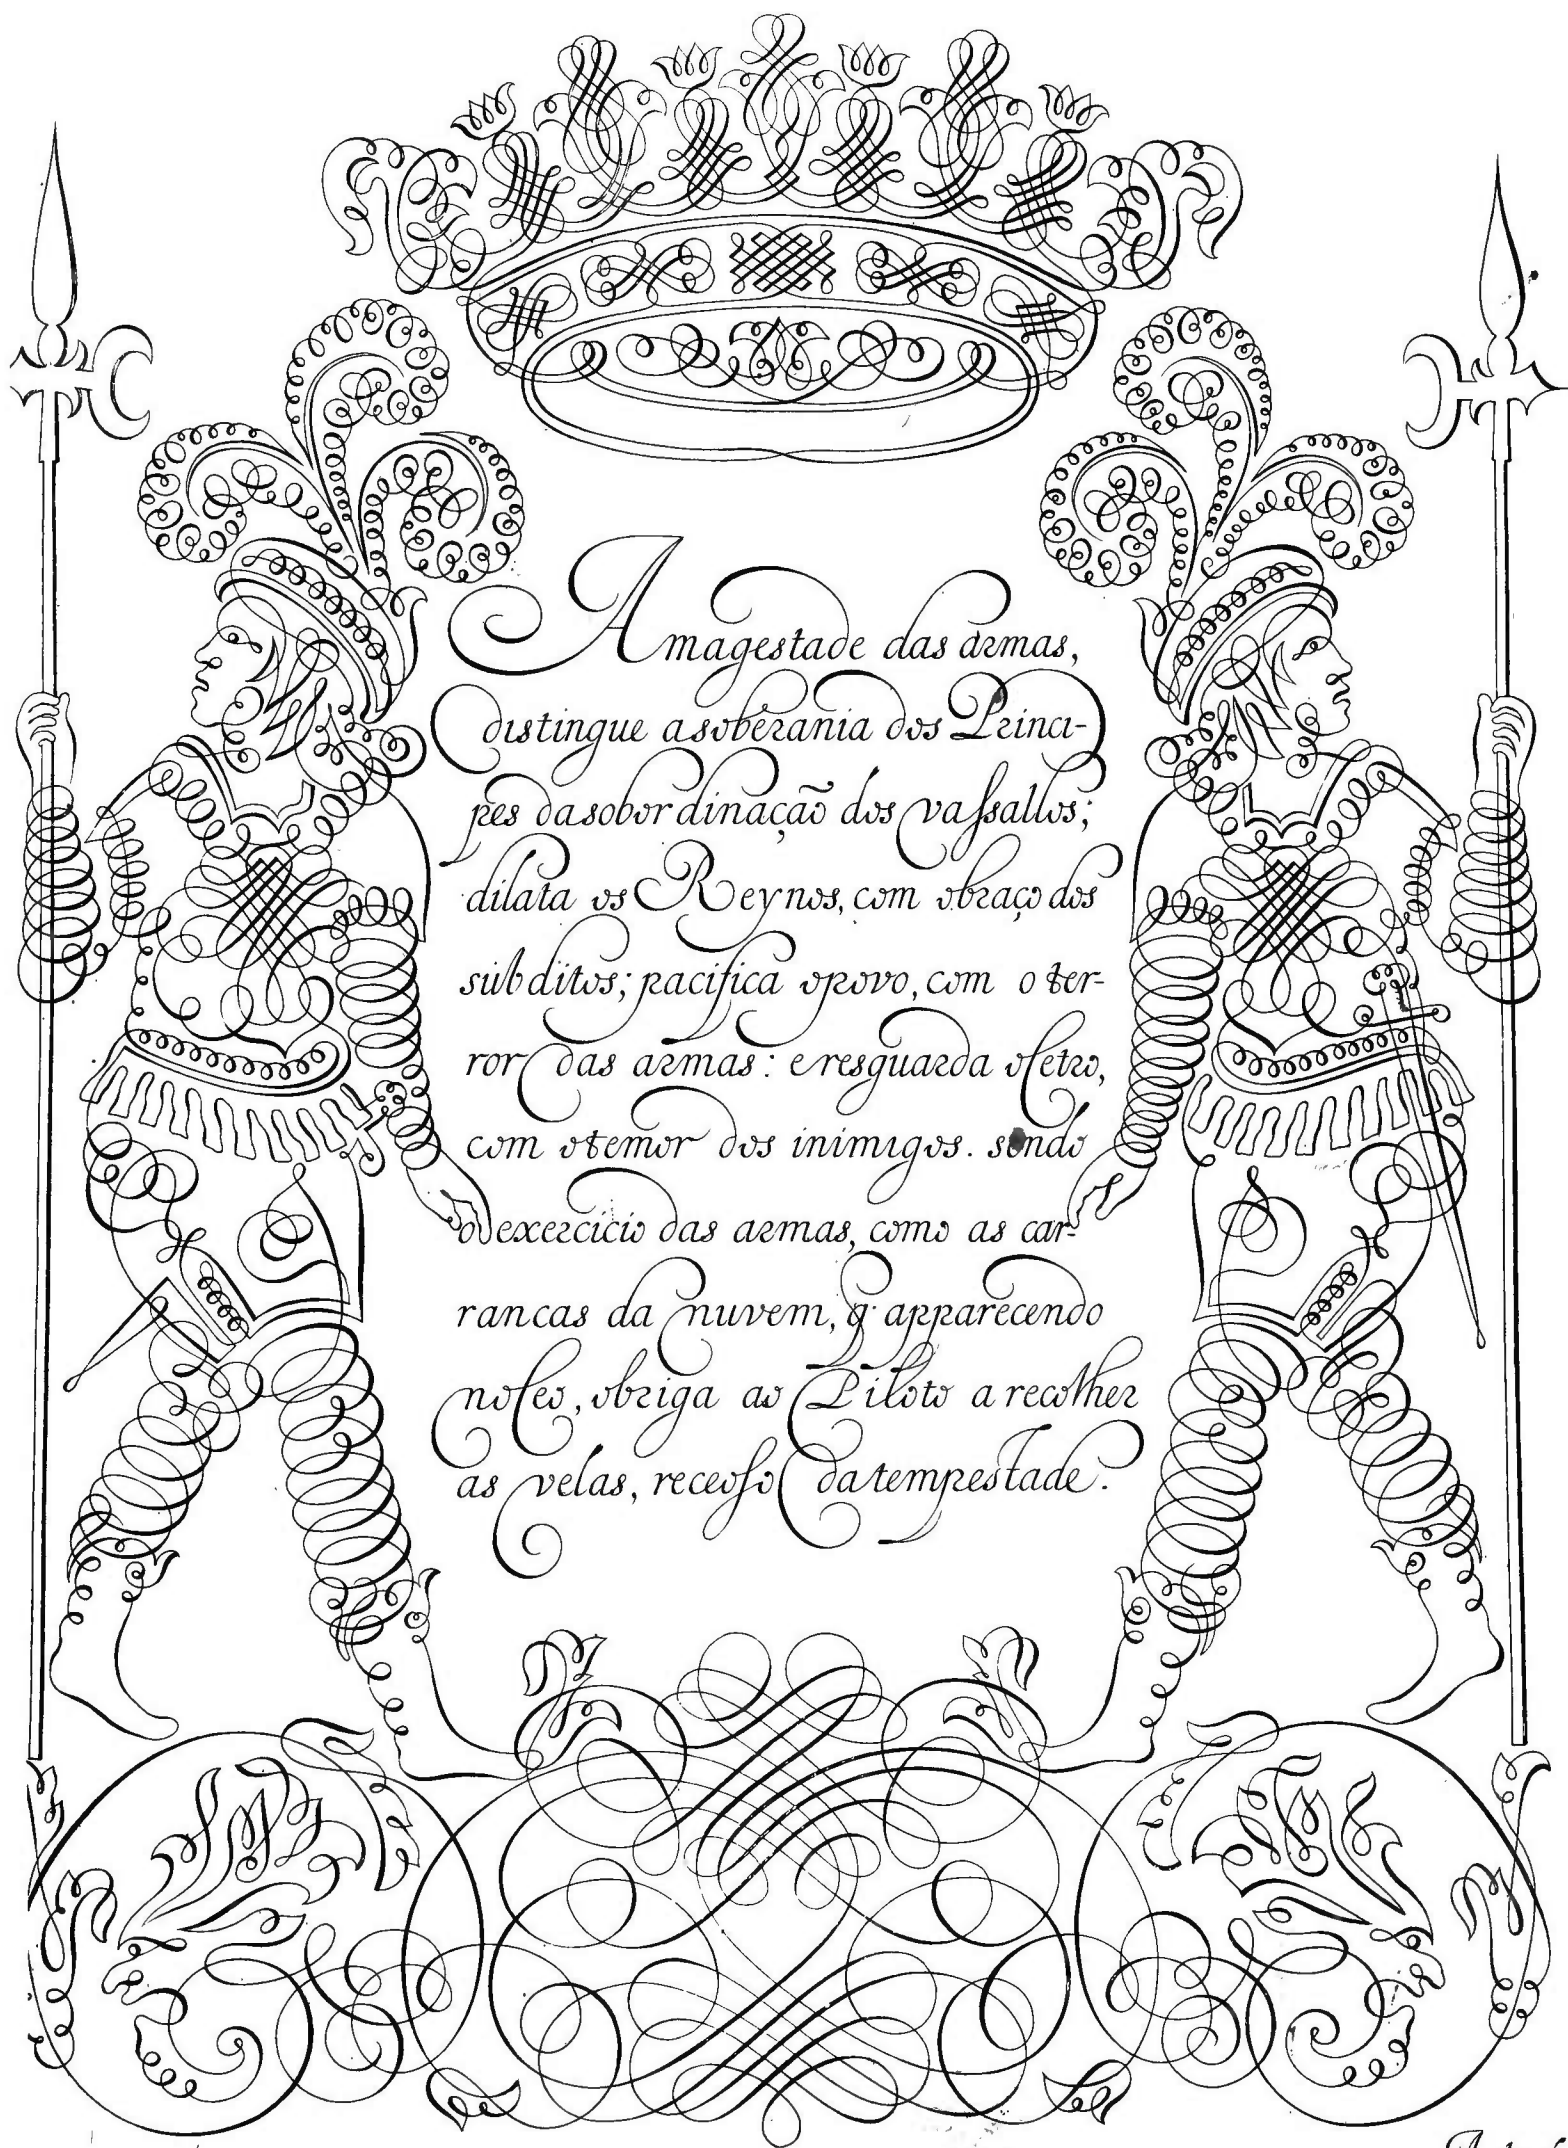 A magestade das armas,
distingue a soberania dos Princi-
pes da sobordinação dos vassallos;
dilata os Reynos, com o braço dos
subditos; pacifica o povo, com o ter-
ror das armas: e resguarda o Cetro,
com o temor dos inimigos. sendo
o exercicio das armas, como as car-
rancas da nuvem, q̃ apparecendo
no Ceo, obriga ao Piloto a recolher
as velas, receoso da tempestade.